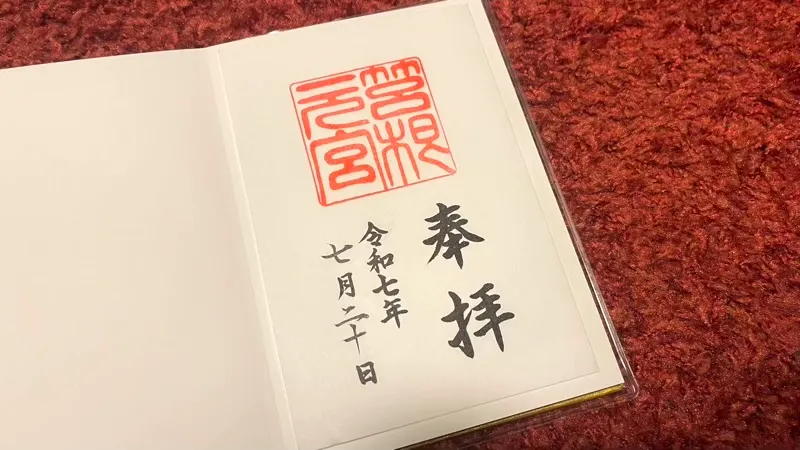 筥根
元宮
奉拝
令和七年
七月二十日